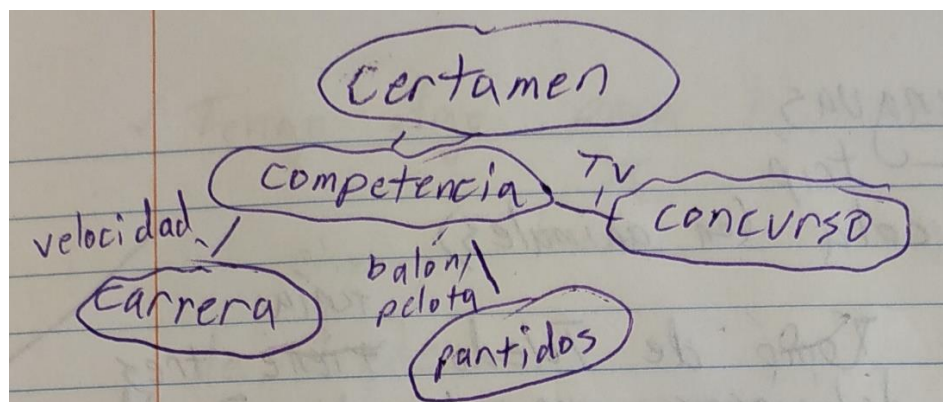 certamen
competencia
TV
concurso
velocidad
carrera
balón/
pelota
partidos